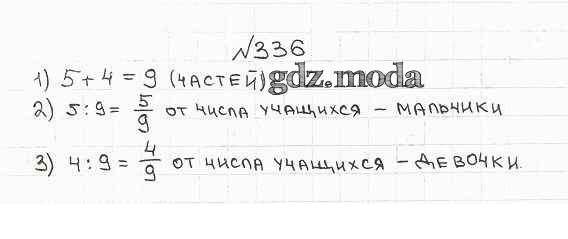 №336
1) 5+4=9 (ЧАСТЕЙ) gdz.moda
2) 5:9= 5/9 ОТ ЧИСЛА УЧАЩИХСЯ – МАЛЬЧИКИ
3) 4:9= 4/9 ОТ ЧИСЛА УЧАЩИХСЯ – ДЕВОЧКИ.